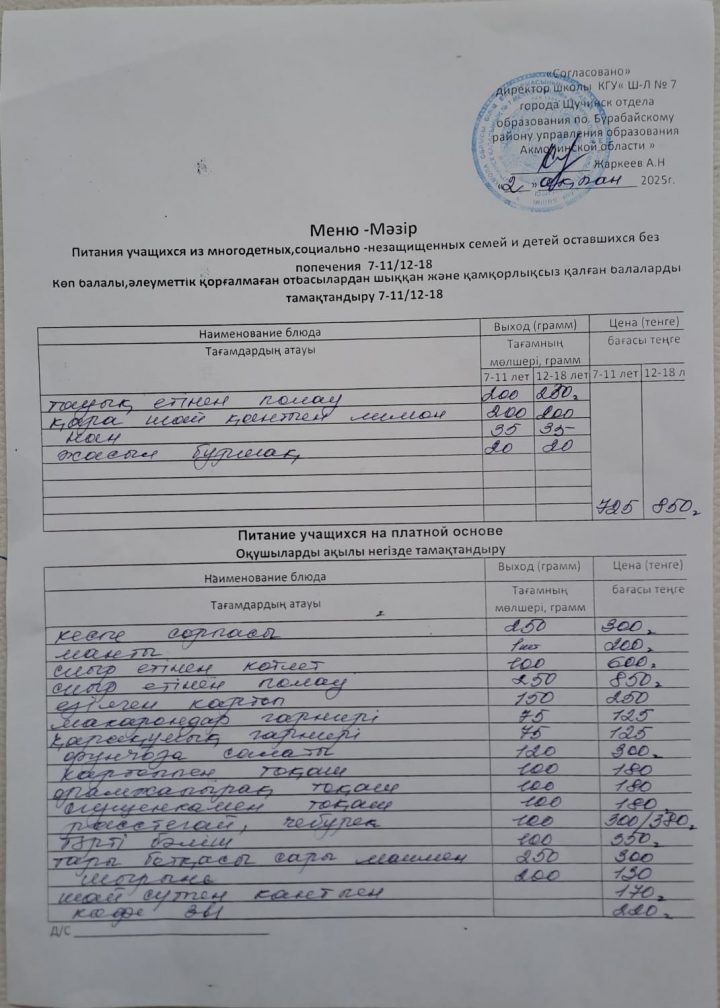 «Согласовано»
директор школы КГУ« Ш-Л № 7
города Щучинск отдела
образования по Бурабайскому
району управления образования
Акмолинской области »
Жаркеев А.Н
«2» ақпан 2025г.
Меню -Мәзір
Питания учащихся из многодетных,социально -незащищенных семей и детей оставшихся без
попечения 7-11/12-18
Көп балалы,әлеуметтік қорғалмаған отбасылардан шыққан және қамқорлықсыз қалған балаларды
тамақтандыру 7-11/12-18
Наименование блюда Выход (грамм) Цена (тенге)
Тағамдардың атауы Тағамның мөлшері, грамм бағасы теңге
7-11 лет 12-18 лет 7-11 лет 12-18 л
тауық етінен полау 200 250
қара шай қантпен лимон 200 200
нан 35 35
жасыл бұршақ 20 20
725 850
Питание учащихся на платной основе
Оқушыларды ақылы негізде тамақтандыру
Наименование блюда Выход (грамм) Цена (тенге)
Тағамдардың атауы Тағамның мөлшері, грамм бағасы теңге
кеспе сорпасы 250 300
манты 1шт 200
сиыр етінен котлет 100 600
сиыр етінен полау 250 850
езілген картоп 150 250
макарондар гарнирі 75 125
қарақұмық гарнирі 75 125
фунчоза салаты 120 300
картоппен тоқаш 100 180
орамжапырақ тоқаш 100 180
сгущенкамен тоқаш 100 180
расстегай, чебурек 100 300/380
тәтті бәліш 100 350
тары ботқасы сары маймен 250 300
шырын 200 130
шай сүтпен кантпен 170
кофе 3в1 220
Д/С